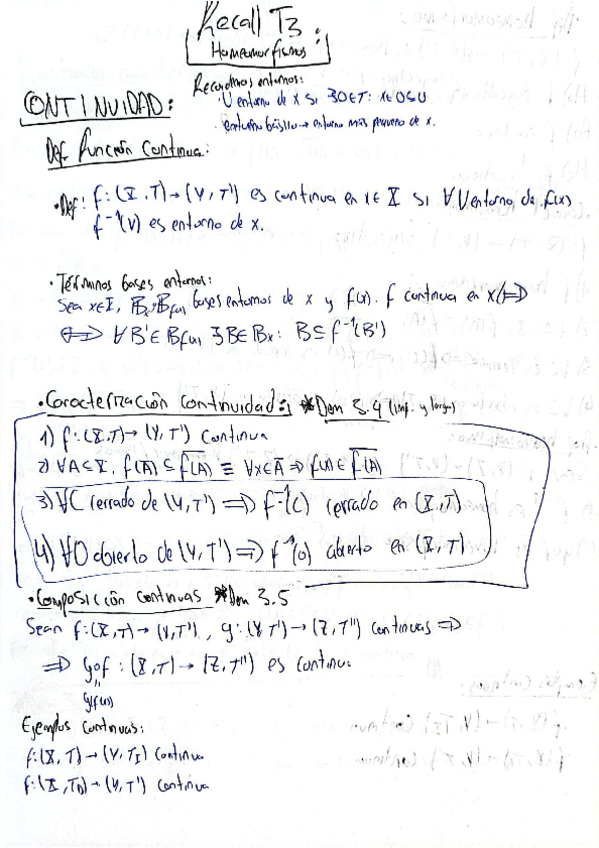 Recall T3:
Homeomorfismos
Recordamos entornos:
· U entorno de x si ∃O∈T: x∈O⊆U
· Entorno básico → entorno más pequeño de x.
CONTINUIDAD:
Def función continua:
· Def: f: (X,T) → (Y,T') es continua en x∈X si ∀V entorno de f(x)
f⁻¹(V) es entorno de x.
· Términos bases entornos:
Sea x∈X, Bx, Bf(x) bases entornos de x y f(x). f continua en x ⟺
⟺ ∀B'∈Bf(x) ∃B∈Bx: B⊆f⁻¹(B')
· Caracterización continuidad: * Dem 3.4 (imp. y larga)
1) f: (X,T) → (Y,T') continua
2) ∀A⊆X, f(A̅) ⊆ f(A)̅ ≡ ∀x∈A̅ ⇒ f(x)∈f(A)̅
3) ∀C cerrado de (Y,T') ⟹ f⁻¹(C) cerrado en (X,T)
4) ∀O abierto de (Y,T') ⟹ f⁻¹(O) abierto en (X,T)
· Composición continuas * Dem 3.5
Sean f: (X,T) → (Y,T'), g: (Y,T') → (Z,T'') continuas ⟹
⟹ g∘f : (X,T) → (Z,T'') es continua
=
g(f(x))
Ejemplos continuas:
f: (X,T) → (Y,T_I) continua
f: (X,T_D) → (Y,T') continua